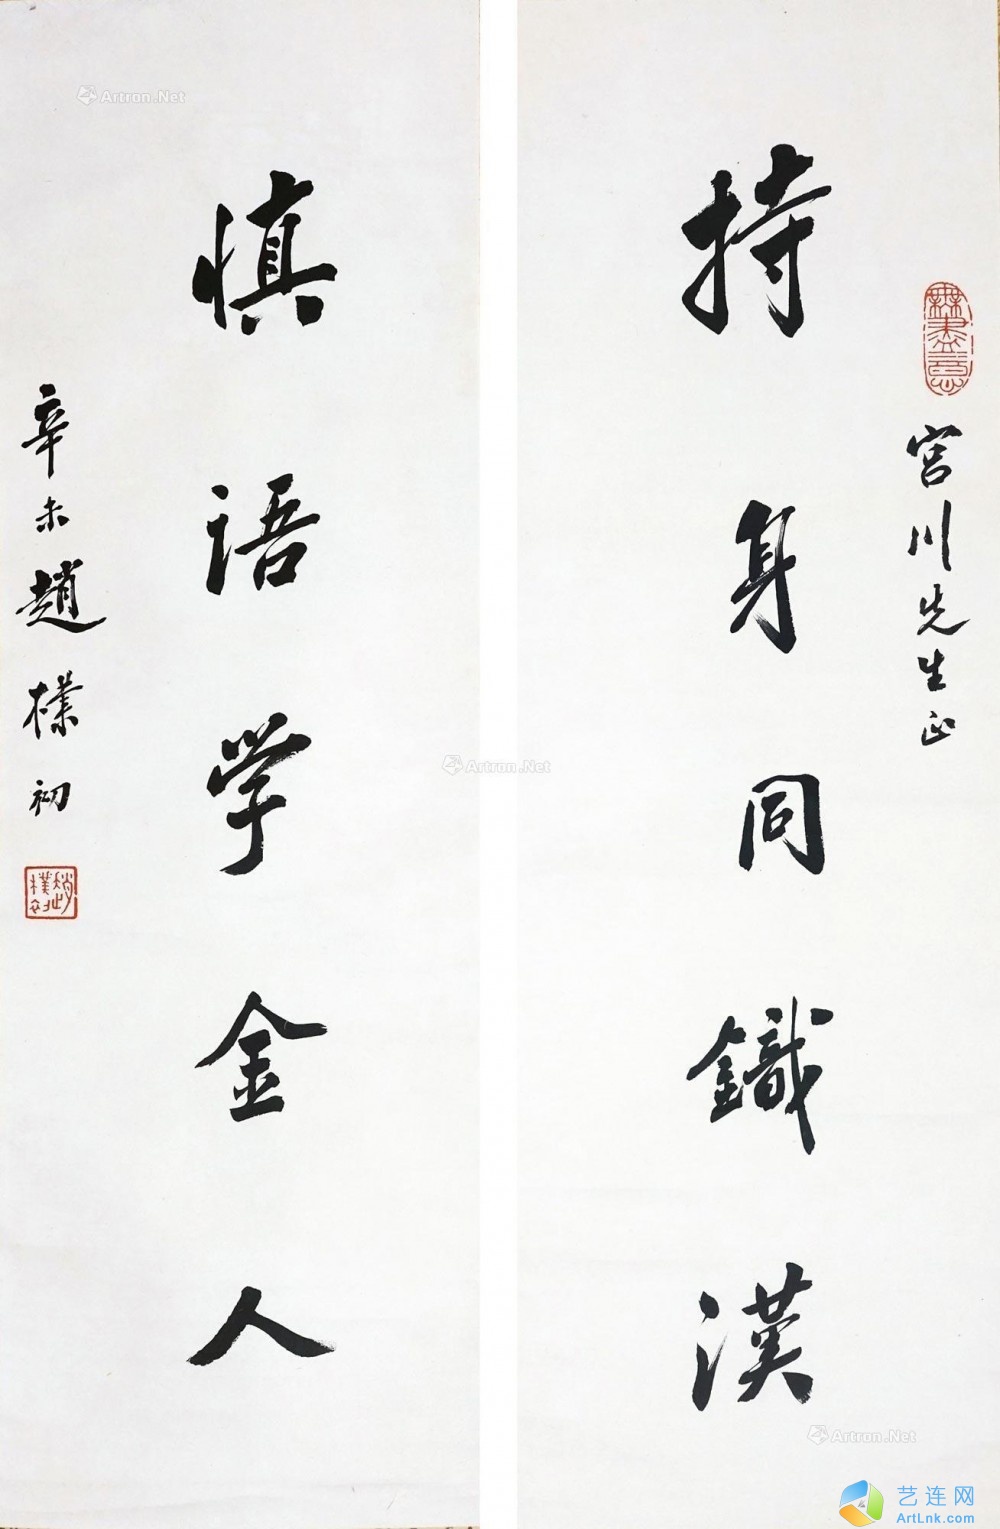 宫川先生正
持身同鐵漢
慎语学金人
辛未趙樸初
無盡意
趙樸初
Artron.Net
Artron.Net
Artron.Net
艺连网
ArtLnk.com